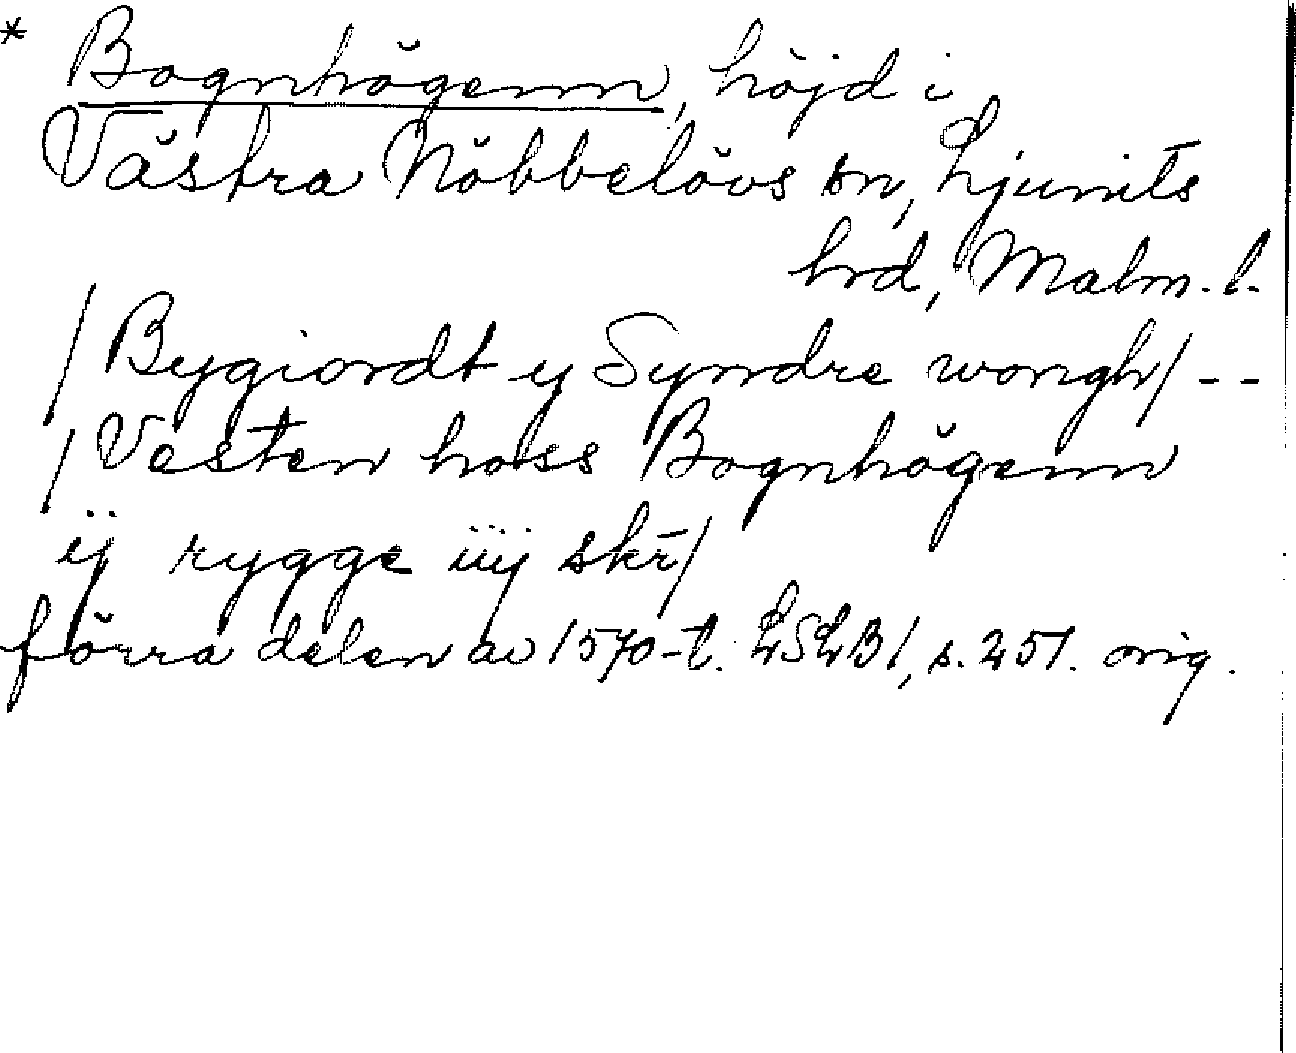 * Bognhögenn, höjd i
Västra Nöbbelövs sn, Ljunits
hrd, Malm. l.
/ Bygiordt y Syndre wongh / - -
/ Vesten hoss Bognhögenn
ij rygge iiij skr̄ /
förra delen av 1570-t. LSLB 1, s. 251. orig.